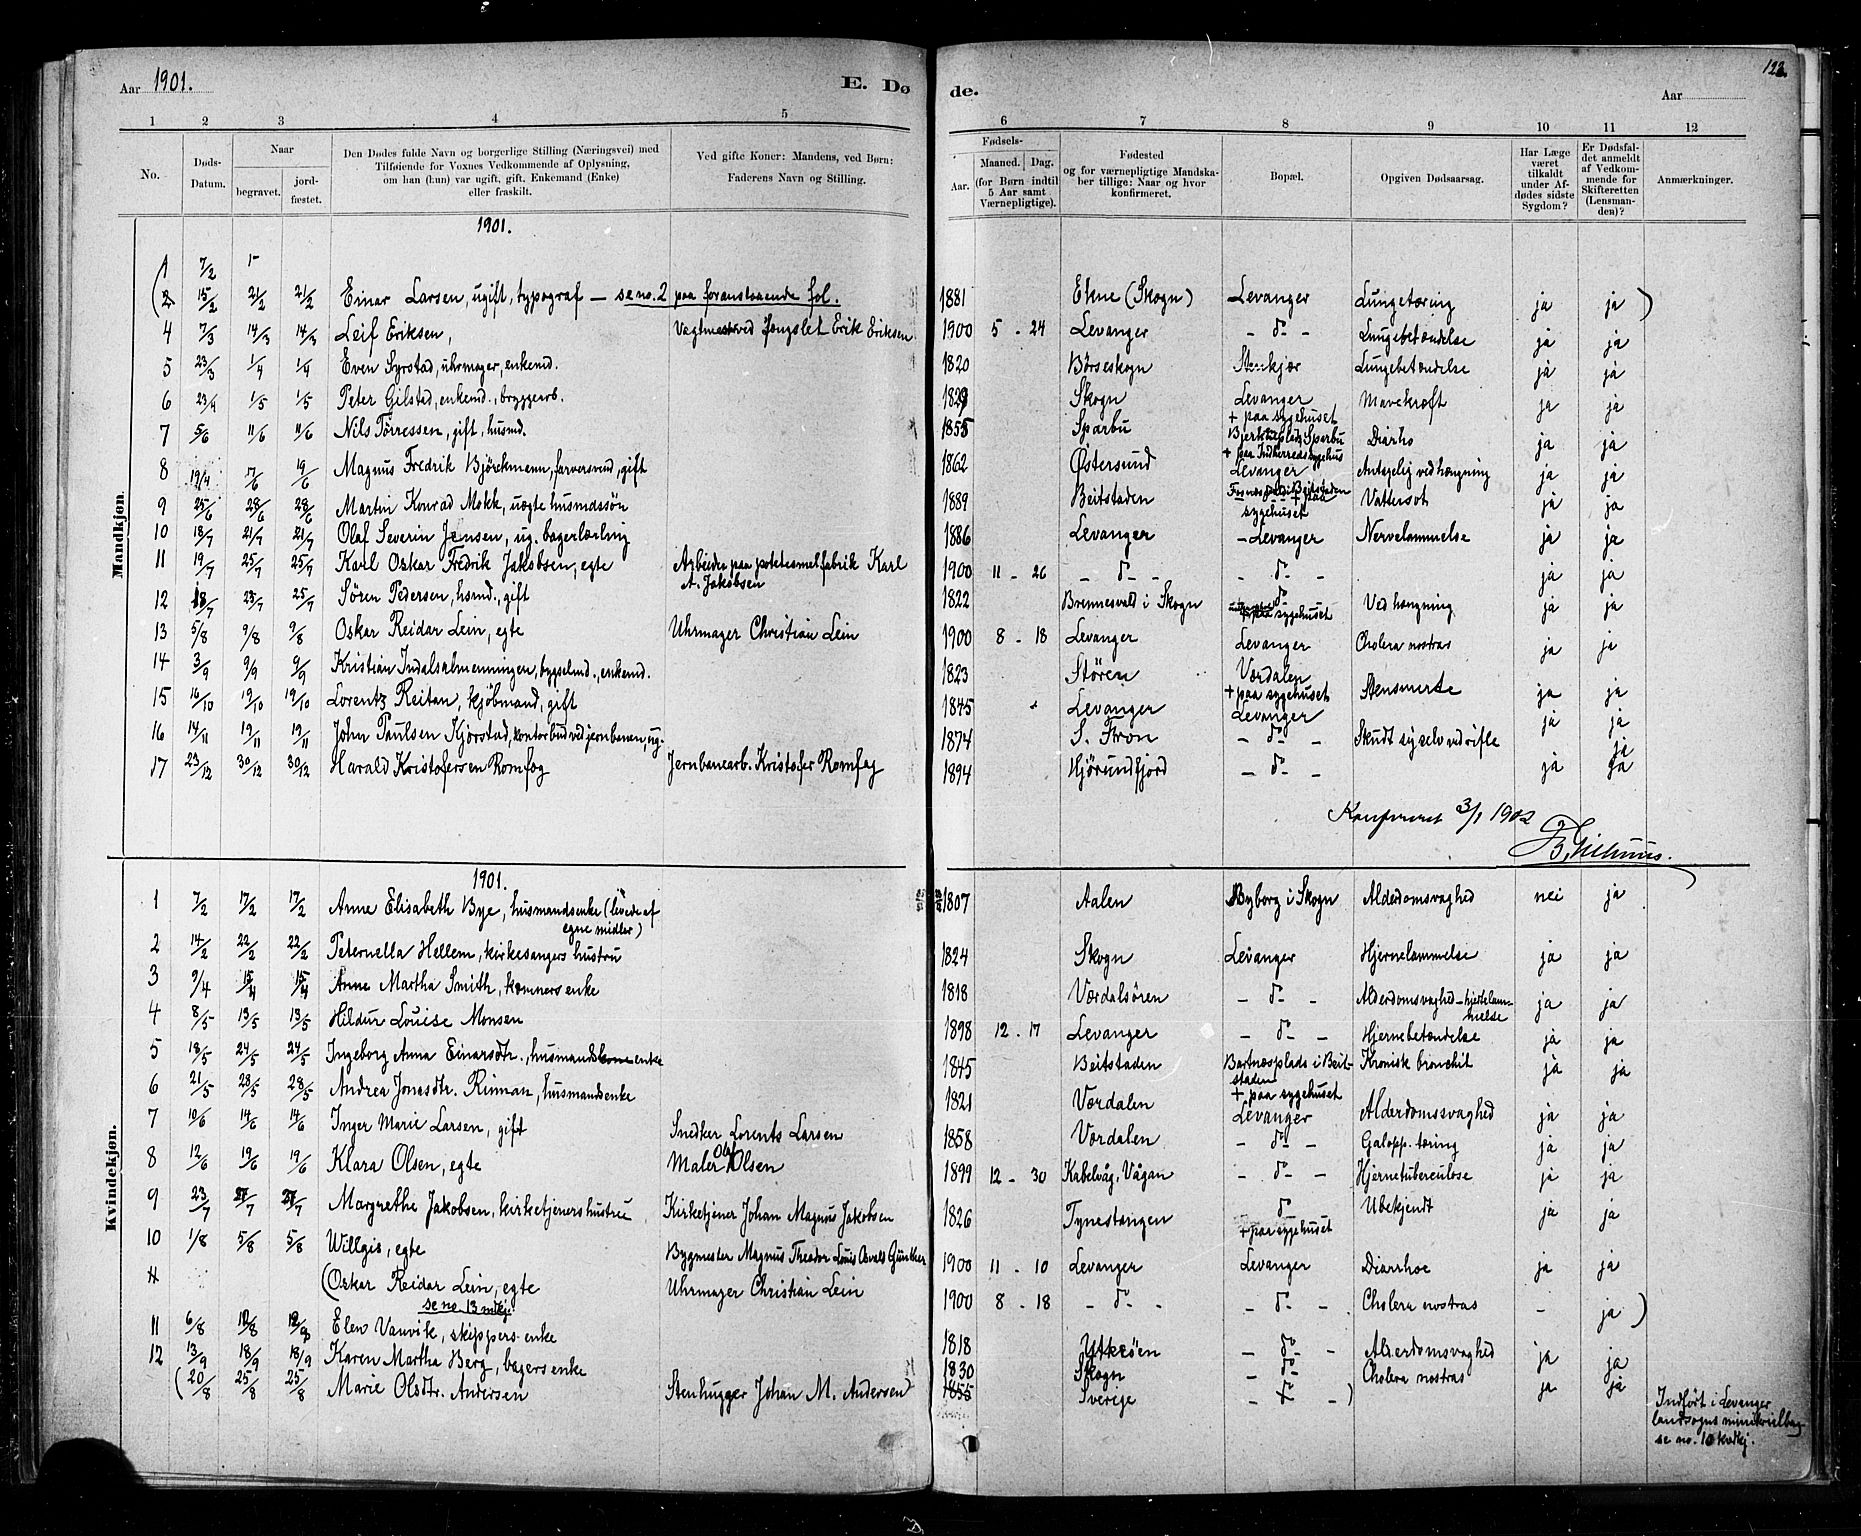 Aar 1901. E. Døde. Aar 123.
1 2 3 4 5 6 7 8 9 10 11 12
No.
Døds-Datum.
Naar begravet. jordfæstet.
Den Dødes fulde Navn og borgerlige Stilling (Næringsvei) med Tilføiende for Voxnes Vedkommende af Oplysning, om han (hun) var ugift, gift, Enkemand (Enke) eller fraskilt.
Ved gifte Koner: Mandens, ved Børn: Faderens Navn og Stilling.
Fødsels-
Aar. Maaned. Dag. (for Børn indtil 5 Aar samt Værnepligtige).
Fødested og for værnepligtige Mandskaber tillige: Naar og hvor konfirmeret.
Bopæl.
Opgiven Dødsaarsag.
Har Læge været tilkaldt under Afdødes sidste Sygdom?
Er Dødsfaldet anmeldt af Vedkommende for Skifteretten (Lensmanden)?
Anmærkninger.
Mandkjøn.
1901.
1 7/2
(2 15/2 21/2 21/2 Einar Larsen, ugift, typograf — se no. 2 paa foranstaaende fol. 1881 Ekne (Skogn) Levanger Lungetæring ja ja )
4 7/3 14/3 14/3 Leif Eriksen, ved fengslet Erik Eriksen 1900 5 - 24 Levanger - do - Lungebetændelse ja ja
5 23/3 1/4 1/4 Even Syrstad, uhrmager, enkemd. 1820 Børseskogn Stenkjær Lungebetændelse ja ja
6 23/4 1/5 1/5 Peter Gilstad, enkemd., bryggearb. 1829 Skogn Levanger Mavekræft ja ja
+ paa sygehuset
7 5/6 11/6 11/6 Nils Törressen, gift, husmd. 1855 Sparbu Sparbu Diarho ja ja
+ paa Indherreds sygehus
8 19/4 17/6 19/6 Magnus Fredrik Björckmann, farversvend, gift 1862 Østersund Levanger Antagelig ved hængning ja ja
9 25/6 28/6 28/6 Martin Konrad Mokk, uegte husmdssön 1889 Beitstaden Beitstaden + paa sygehuset Vattersot ja ja
10 18/7 21/7 21/7 Olaf Severin Jensen, ug. bagerlærling 1886 Levanger - Levanger Nervelammelse ja ja
11 19/7 25/7 25/7 Karl Oskar Fredrik Jakobsen, egte Arbeider paa potetesmelfabrik Karl A. Jakobsen 1900 11 - 26 - do - - do - ja ja
12 18/7 23/7 25/7 Sören Pedersen, hsmd., gift 1822 Brennesvald i Skogn do sygehuset Ved hængning ja ja
13 5/8 9/8 9/8 Oskar Reidar Lein, egte Uhrmager Christian Lein 1900 8 - 18 Levanger Levanger Cholera nostras ja ja
14 3/9 9/9 9/9 Kristian Indalsalmenningen, bygselmd., enkemd. 1823 Stören Værdalen + paa sygehuset Stensmerte ja ja
15 16/10 19/10 19/10 Lorentz Reitan, kjöbmand, gift 1845 Levanger Levanger ja ja
16 14/11 19/11 19/11 John Paulsen Kjörstad, kontorbud ved jernbanen, ug. 1874 S. Fron - do - Skudt sig selv ved rifle ja
17 23/12 30/12 30/12 Harald Kristofersen Romfog Jernbanearb. Kristofer Romfog 1894 Hjørundfjord - do - ja ja
Konfereret 3/1 1902
Kvindekjøn.
1901.
1 7/2 17/2 17/2 Anne Elisabeth Bye, husmandsenke (levede af egne midler) 1807 Aalen Byborg i Skogn Alderdomsvaghed nei ja
2 14/2 22/2 22/2 Peternella Hellem, kirkesangers hustru 1824 Skogn Levanger Hjernelammelse ja ja
3 9/4 15/4 15/4 Anne Martha Smith, kæmners enke 1818 Værdalsören - do - Alderdomsvaghed - hjertelammelse ja ja
4 8/5 13/5 13/5 Hildur Louise Monsen 1898 12 - 17 Levanger - do - Hjernebetændelse ja ja
5 18/5 24/5 24/5 Ingeborg Anna Einarsdtr., husmandskone enke 1845 Beitstaden Bartnæsplads i Beitstaden Kronisk bronchit ja ja
+ paa sygehuset
6 21/5 28/5 28/5 Andrea Jonasdtr. Rinnan, husmandsenke 1821 Værdalen Levanger Alderdomssvaghed ja ja
7 10/6 14/6 14/6 Inger Marie Larsen, gift Snedker Lorents Larsen 1858 Værdalen - do - Galopp. tæring ja ja
8 12/6 19/6 19/6 Klara Olsen, egte Maler Ole Olsen 1899 12 - 30 Kabelvåg, Vågan - do - Hjernetuberculose ja ja
9 23/7 27/7 27/7 Margrethe Jakobsen, kirketjeners hustru Kirketjener Johan Magnus Jakobsen 1826 Tynestangen do + paa sygehuset Ubekjendt ja ja
10 1/8 5/8 5/8 Willgis, egte Bygmester Magnus Theodor Louis Osvald Günther 1900 11 - 10 Levanger Levanger Diarrhoe ja ja
11 (Oskar Reidar Lein, egte Uhrmager Christian Lein 1900 8 - 18 - do - - do - Cholera nostras - ja )
se no. 13 mdkj.
11 6/8 12/8 12/8 Elen Vanvik, skippers enke 1818 Ytterøen - do - Alderdomsvaghed ja ja
12 13/9 18/9 18/9 Karen Martha Berg, bagers enke 1830 Skogn - do - Cholera nostras ja ja
(20/8 25/8 25/8 Marie Olsdtr. Andersen Stenhugger Johan M. Andersen 1855 Sverige - do - )
Indført i Levanger
landsogns ministerialbog
se no. 10 kvdkj.